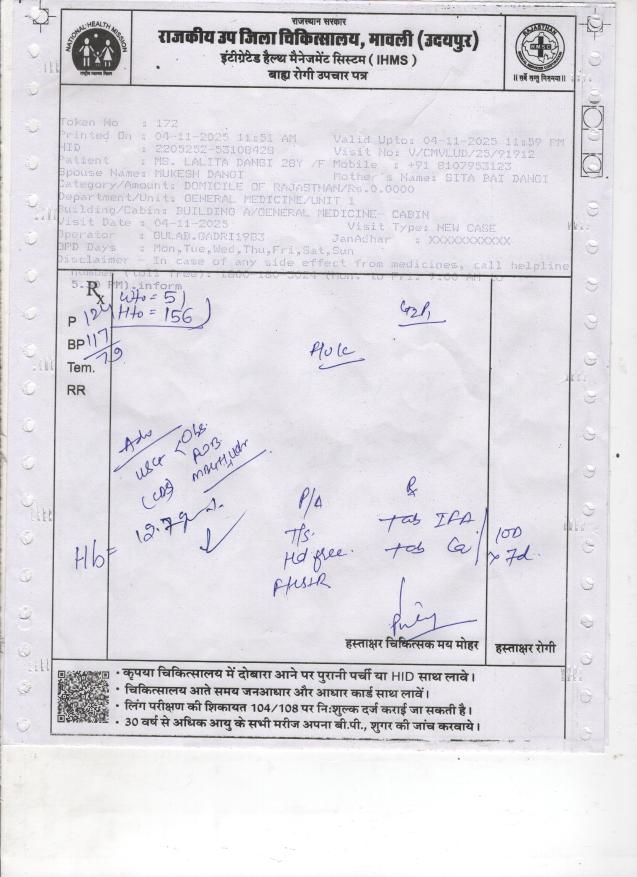 राजस्थान सरकार
राजकीय उप जिला चिकित्सालय, मावली (उदयपुर)
इंटीग्रेटेड हैल्थ मैनेजमेंट सिस्टम ( IHMS )
बाह्य रोगी उपचार पत्र
NATIONAL HEALTH MISSION
राष्ट्रीय स्वास्थ्य मिशन
RAJASTHAN
RMSC
|| सर्वे सन्तु निरामयाः ||
Token No : 172
Printed On : 04-11-2025 11:51 AM Valid Upto: 04-11-2025 11:59 PM
HID : 2205252-53108428 Visit No: V/CMVLUD/25/91912
Patient : MS. LALITA DANGI 28Y /F Mobile : +91 8107953123
Spouse Name: MUKESH DANGI Mother's Name: SITA BAI DANGI
Category/Amount: DOMICILE OF RAJASTHAN/Rs.0.0000
Department/Unit: GENERAL MEDICINE/UNIT 1
Building/Cabin: BUILDING A/GENERAL MEDICINE- CABIN
Visit Date : 04-11-2025 Visit Type: NEW CASE
Operator : GULAB.GADRI1983 JanAadhar : XXXXXXXXXXX
OPD Days : Mon,Tue,Wed,Thu,Fri,Sat,Sun
Disclaimer - In case of any side effect from medicines, call helpline
number (Toll free): 1800 180 3024 (Mon. to Fri. 9:00 AM to
5. PM).inform
Rx
Wt = 51
Ht = 156
P 124
BP 117
79
Tem.
RR
G2P1
Adv
USG
Obs.
(CBS)
Hb = 12.7g
P/A
Rx
Tab IFA
Tab Ca
100
x 7d.
हस्ताक्षर चिकित्सक मय मोहर
हस्ताक्षर रोगी
• कृपया चिकित्सालय में दोबारा आने पर पुरानी पर्ची या HID साथ लावे।
• चिकित्सालय आते समय जनआधार और आधार कार्ड साथ लावें।
• लिंग परीक्षण की शिकायत 104/108 पर नि:शुल्क दर्ज कराई जा सकती है।
• 30 वर्ष से अधिक आयु के सभी मरीज अपना बी.पी., शुगर की जांच करवाये।